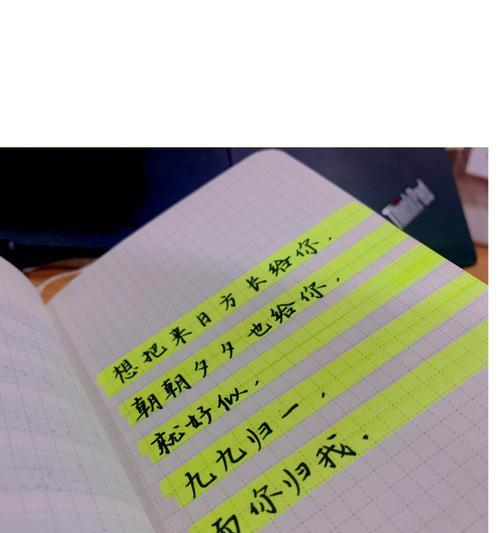 ThinkPad
想把来日方长给你.
朝朝夕夕也给你.
就好似.
九九归一.
而你归我.